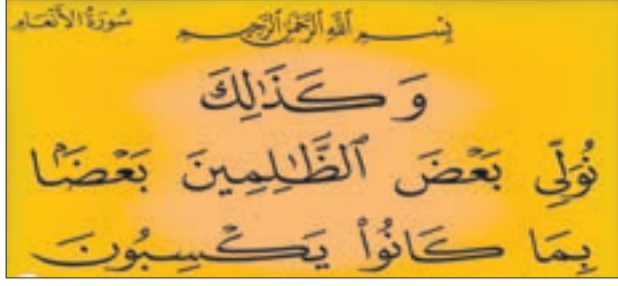 سُورَةُ الأَنْعَام
بِسْمِ ٱللَّهِ ٱلرَّحْمَٰنِ ٱلرَّحِيمِ
وَ كَذَٰلِكَ
نُوَلِّى بَعْضَ ٱلظَّٰلِمِينَ بَعْضَۢا
بِمَا كَانُوا۟ يَكْسِبُونَ